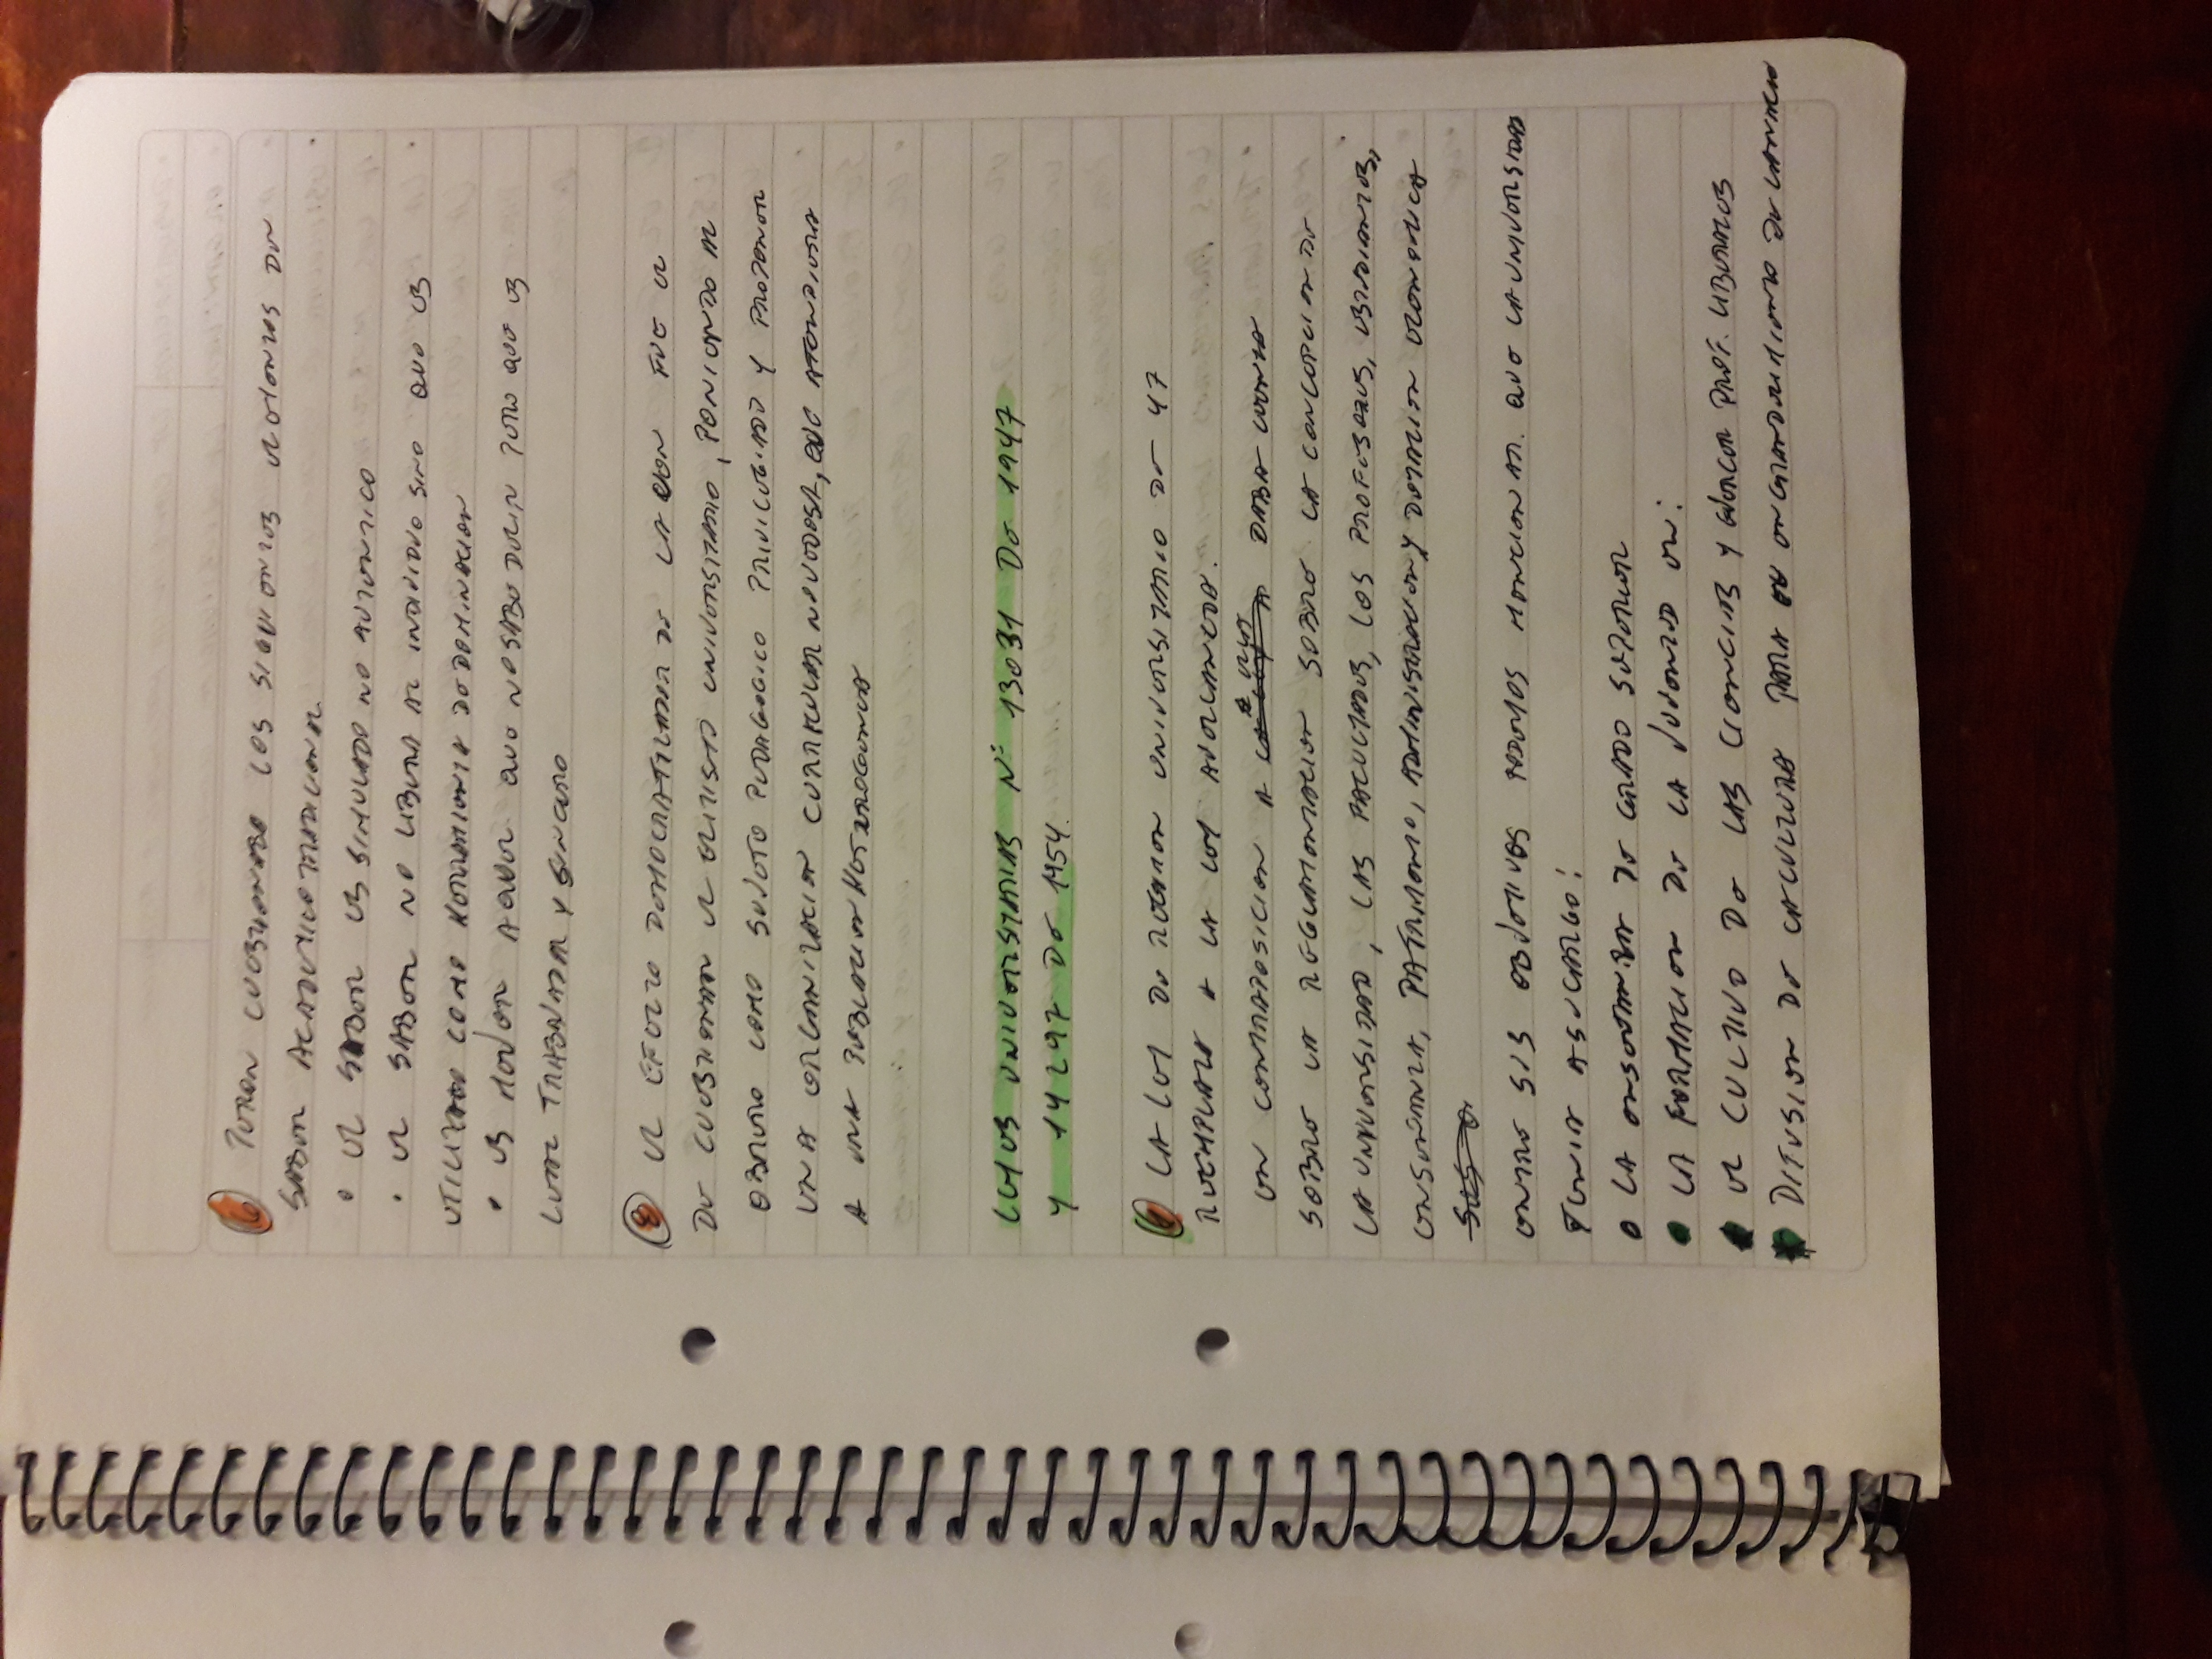 6 FUERON CUESTIONADO LOS SIGUIENTES ELEMENTOS DEL
SABER ACADEMICO TRADICIONAL
• EL SABER ES SIMULADO NO AUTENTICO
• EL SABER NO LIBERA AL INDIVIDUO SINO QUE ES
UTILIZADO COMO HERRAMIENTA DE DOMINACION
• ES MEJOR AQUEL QUE NO SABE DECIR PERO QUE ES
LEAL TRABAJADOR Y SINCERO
8 EL EFECTO DEMOCRATIZADOR DE LA UON FUE EL
DE CUESTIONAR EL ELITISMO UNIVERSITARIO, PONIENDO AL
OBRERO COMO SUJETO PEDAGOGICO PRIVILEGIADO Y PROPONER
UNA ORGANIZACION CURRICULAR NOVEDOSA, QUE ATENDIERA
A UNA POBLACION HETEROGENEA
LEYES UNIVERSITARIAS N° 13031 DE 1947
Y 14297 DE 1954.
LA LEY DE REGIMEN UNIVERSITARIO DE 47
REEMPLAZA A LA LEY AVELLANEDA.
EN CONTRAPOSICION A ELLA DABA CUENTA
SOBRE LA REGLAMENTACION SOBRE LA CONCEPCION DE
LA UNIVERSIDAD, LAS FACULTADES, LOS PROFESORES, ESTUDIANTES,
ENSEÑANZA, PATRIMONIO, ADMINISTRACION Y DOTACION ECONOMICA
ENTRE SUS OBJETIVOS PODEMOS MENCIONAR. QUE LA UNIVERSIDAD
TENIA A SU CARGO:
• LA ENSEÑANZA DE GRADO SUPERIOR
• LA FORMACION DE LA JUVENTUD EN:
• EL CULTIVO DE LAS CIENCIAS Y EJERCER PROF. LIBERALES
* DIFUSION DE LA CULTURA PARA EL ENGRANDECIMIENTO DE LA NACIO